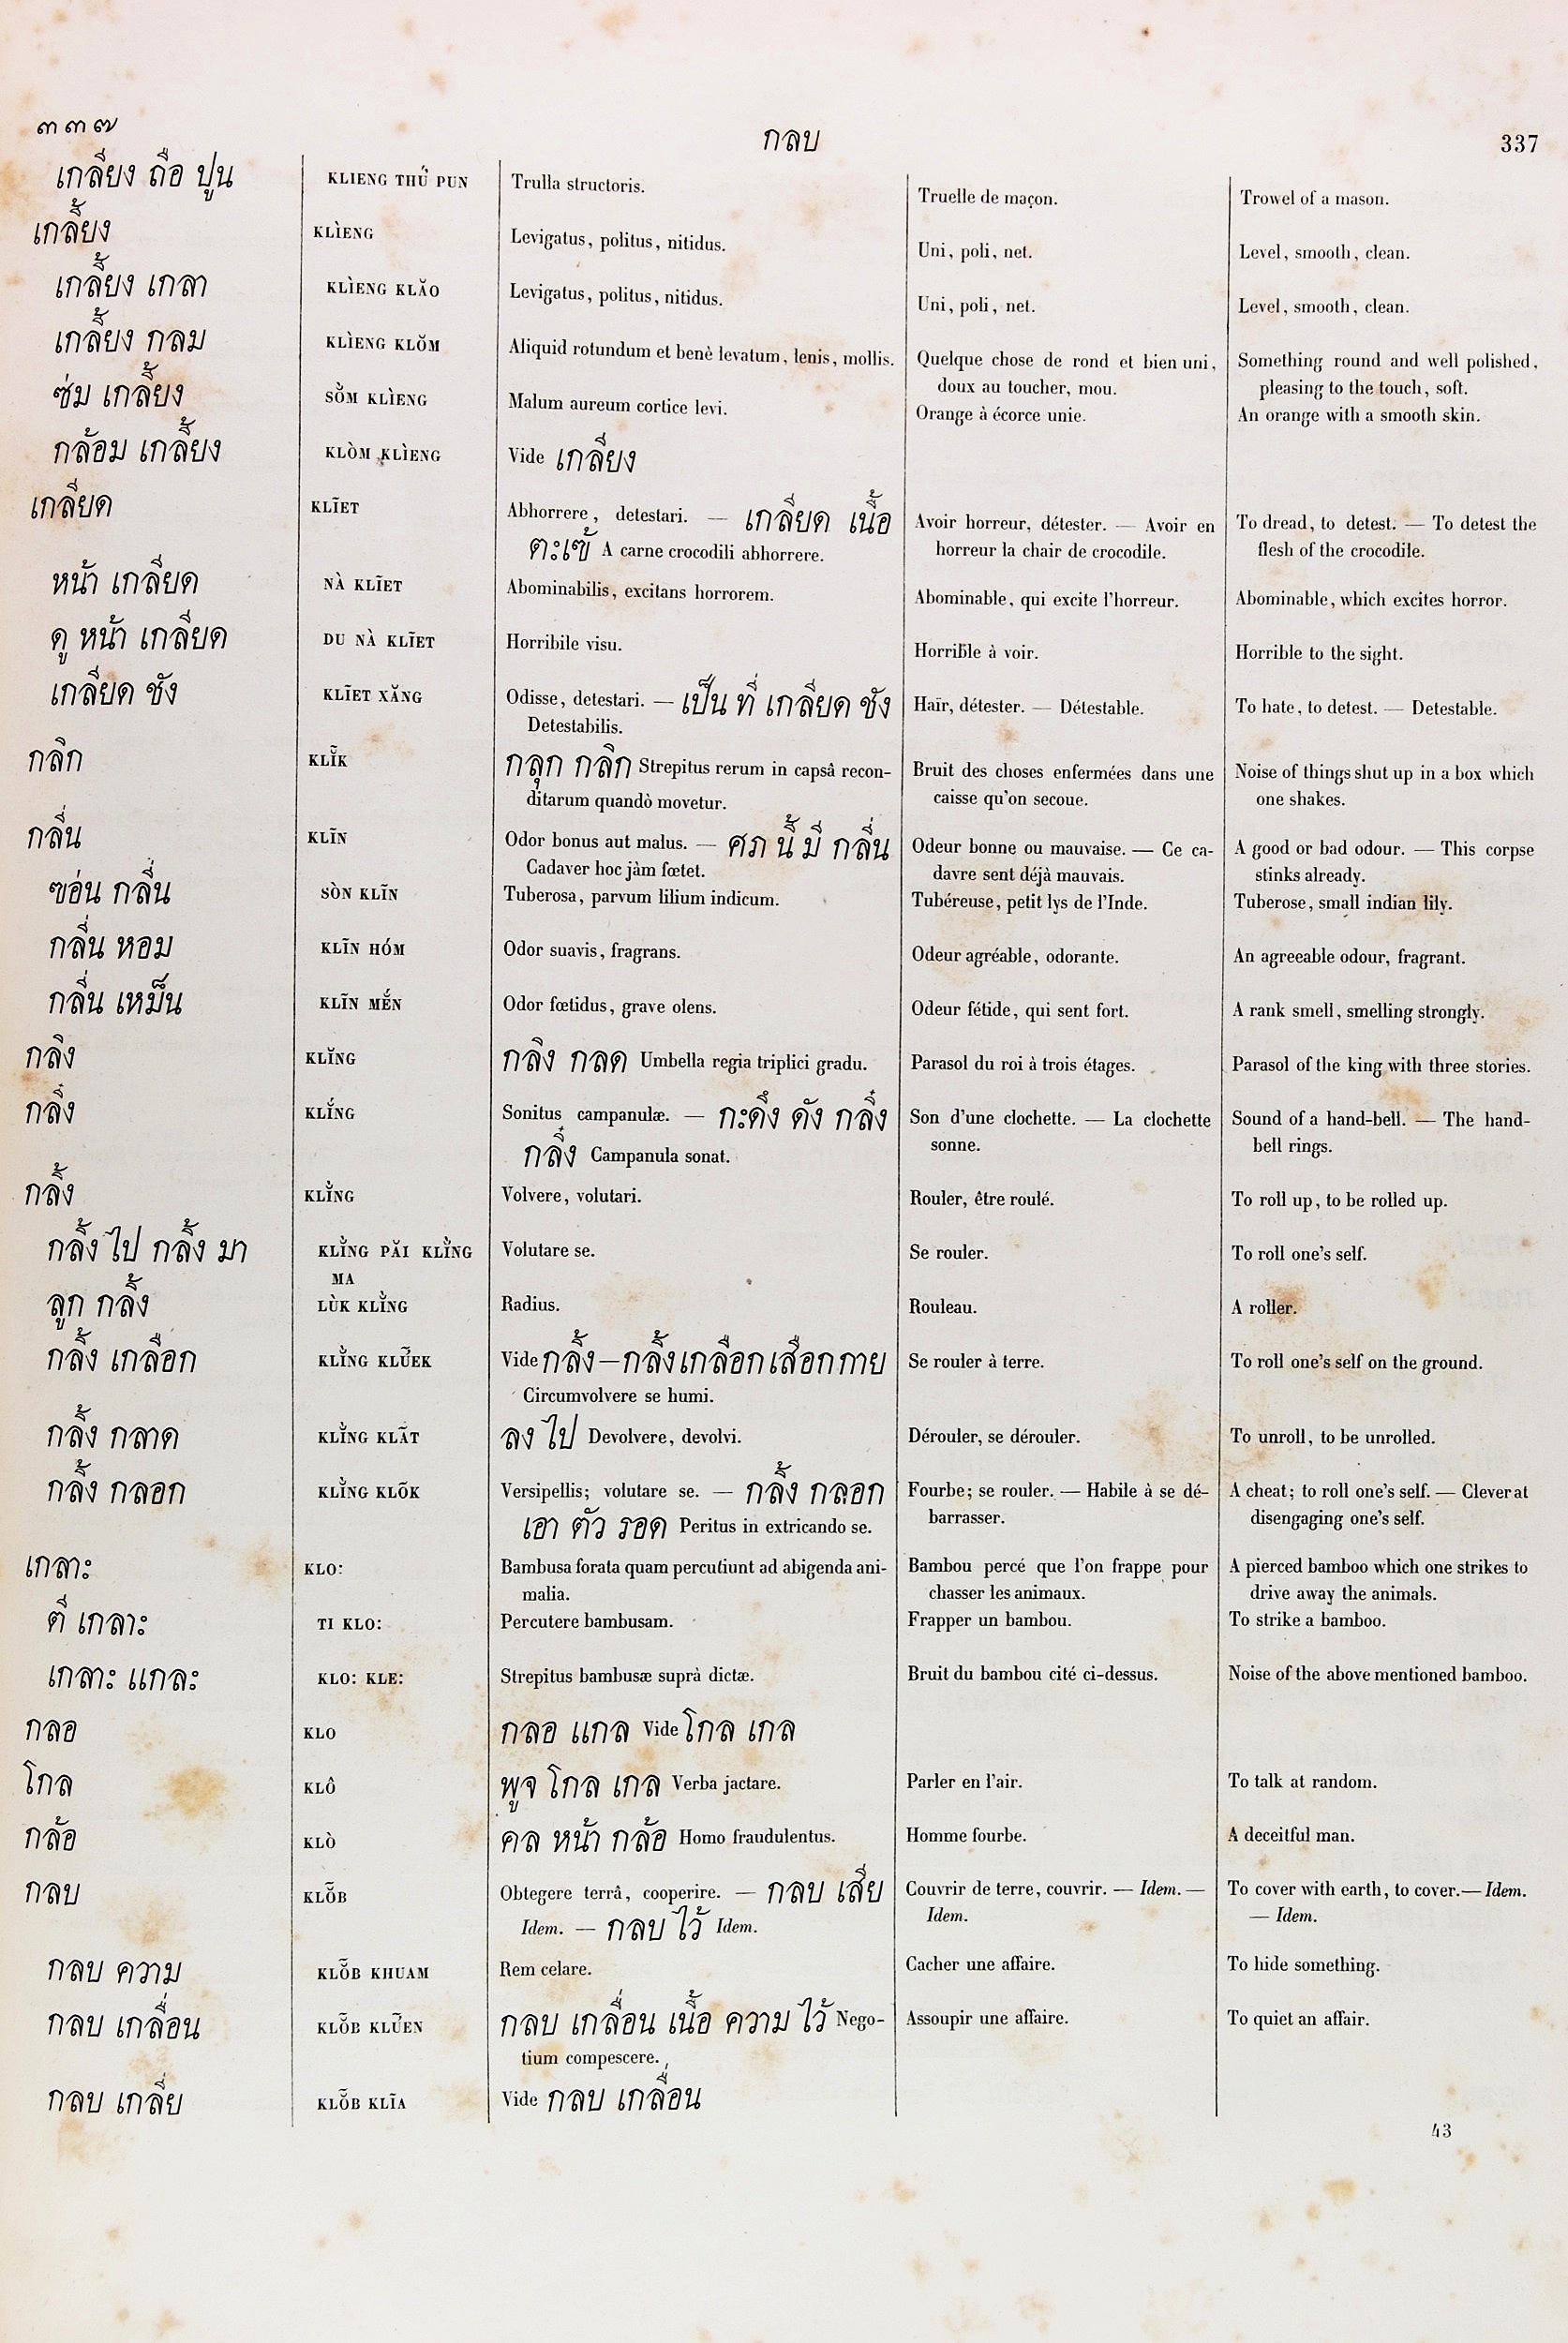 ๓๓๗ กลบ 337
เกลียง ถือ ปูน KLIENG THỨ PUN Trulla structoris. Truelle de maçon. Trowel of a mason.
เกลี้ยง KLÌENG Levigatus, politus, nitidus. Uni, poli, net. Level, smooth, clean.
เกลี้ยง เกลา KLÌENG KLĂO Levigatus, politus, nitidus. Uni, poli, net. Level, smooth, clean.
เกลี้ยง กลม KLÌENG KLŎM Aliquid rotundum et benè levatum, lenis, mollis. Quelque chose de rond et bien uni, Something round and well polished,
doux au toucher, mou. pleasing to the touch, soft.
ซ่ม เกลี้ยง SŎ̀M KLÌENG Malum aureum cortice levi. Orange à écorce unie. An orange with a smooth skin.
กล้อม เกลี้ยง KLÒM KLÌENG Vide เกลี่ยง
เกลียด KLĨET Abhorrere, detestari. — เกลียด เนื้อ Avoir horreur, détester. — Avoir en To dread, to detest. — To detest the
ตะเข้ A carne crocodili abhorrere. horreur la chair de crocodile. flesh of the crocodile.
หน้า เกลียด NÀ KLĨET Abominabilis, excitans horrorem. Abominable, qui excite l'horreur. Abominable, which excites horror.
ดู หน้า เกลียด DU NÀ KLĨET Horribile visu. Horrible à voir. Horrible to the sight.
เกลียด ชัง KLĨET XĂNG Odisse, detestari. — เป็น ที่ เกลียด ชัง Haïr, détester. — Détestable. To hate, to detest. — Detestable.
Detestabilis.
กลิก KLĬ̃K กลุก กลิก Strepitus rerum in capsâ recon- Bruit des choses enfermées dans une Noise of things shut up in a box which
ditarum quandò movetur. caisse qu'on secoue. one shakes.
กลิ่น KLĨN Odor bonus aut malus. — ศภ นี้ มี กลิ่น Odeur bonne ou mauvaise. — Ce ca- A good or bad odour. — This corpse
Cadaver hoc jàm fœtet. davre sent déjà mauvais. stinks already.
ซอ่น กลิ่น SÒN KLĨN Tuberosa, parvum lilium indicum. Tubéreuse, petit lys de l'Inde. Tuberose, small indian lily.
กลิ่น หอม KLĨN HÓM Odor suavis, fragrans. Odeur agréable, odorante. An agreeable odour, fragrant.
กลิ่น เหม็น KLĨN MĔ́N Odor fœtidus, grave olens. Odeur fétide, qui sent fort. A rank smell, smelling strongly.
กลิง KLĬNG กลิง กลด Umbella regia triplici gradu. Parasol du roi à trois étages. Parasol of the king with three stories.
กลิ๋ง KLĬ́NG Sonitus campanulæ. — กะดึง ดัง กลิ๋ง Son d'une clochette. — La clochette Sound of a hand-bell. — The hand-
กลิ๋ง Campanula sonat. sonne. bell rings.
กลิ้ง KLĬ̀NG Volvere, volutari. Rouler, être roulé. To roll up, to be rolled up.
กลิ้ง ไป กลิ้ง มา KLĬ̀NG PĂI KLĬ̀NG Volutare se. Se rouler. To roll one's self.
MA
ลูก กลิ้ง LÙK KLĬ̀NG Radius. Rouleau. A roller.
กลิ้ง เกลือก KLĬ̀NG KLỮEK Vide กลิ้ง — กลิ้ง เกลือก เสือก กาย Se rouler à terre. To roll one's self on the ground.
Circumvolvere se humi.
กลิ้ง กลาด KLĬ̀NG KLÃT ลง ไป Devolvere, devolvi. Dérouler, se dérouler. To unroll, to be unrolled.
กลิ้ง กลอก KLĬ̀NG KLÕK Versipellis; volutare se. — กลิ้ง กลอก Fourbe; se rouler. — Habile à se dé- A cheat; to roll one's self. — Clever at
เอา ตัว รอด Peritus in extricando se. barrasser. disengaging one's self.
เกลาะ KLO: Bambusa forata quam percutiunt ad abigenda ani- Bambou percé que l'on frappe pour A pierced bamboo which one strikes to
malia. chasser les animaux. drive away the animals.
ตี เกลาะ TI KLO: Percutere bambusam. Frapper un bambou. To strike a bamboo.
เกลาะ แกละ KLO: KLE: Strepitus bambusæ suprà dictæ. Bruit du bambou cité ci-dessus. Noise of the above mentioned bamboo.
กลอ KLO กลอ แกล Vide โกล เกล
โกล KLÔ พูจ โกล เกล Verba jactare. Parler en l'air. To talk at random.
กล้อ KLÒ คล หน้า กล้อ Homo fraudulentus. Homme fourbe. A deceitful man.
กลบ KLŎ̃B Obtegere terrâ, cooperire. — กลบ เสีย Couvrir de terre, couvrir. — Idem. — To cover with earth, to cover. — Idem.
Idem. — กลบ ไว้ Idem. Idem. — Idem.
กลบ ความ KLŎ̃B KHUAM Rem celare. Cacher une affaire. To hide something.
กลบ เกลื่อน KLŎ̃B KLỮEN กลบ เกลื่อน เนื้อ ความ ไว้ Nego- Assoupir une affaire. To quiet an affair.
tium compescere.
กลบ เกลี่ย KLŎ̃B KLĨA Vide กลบ เกลื่อน
43